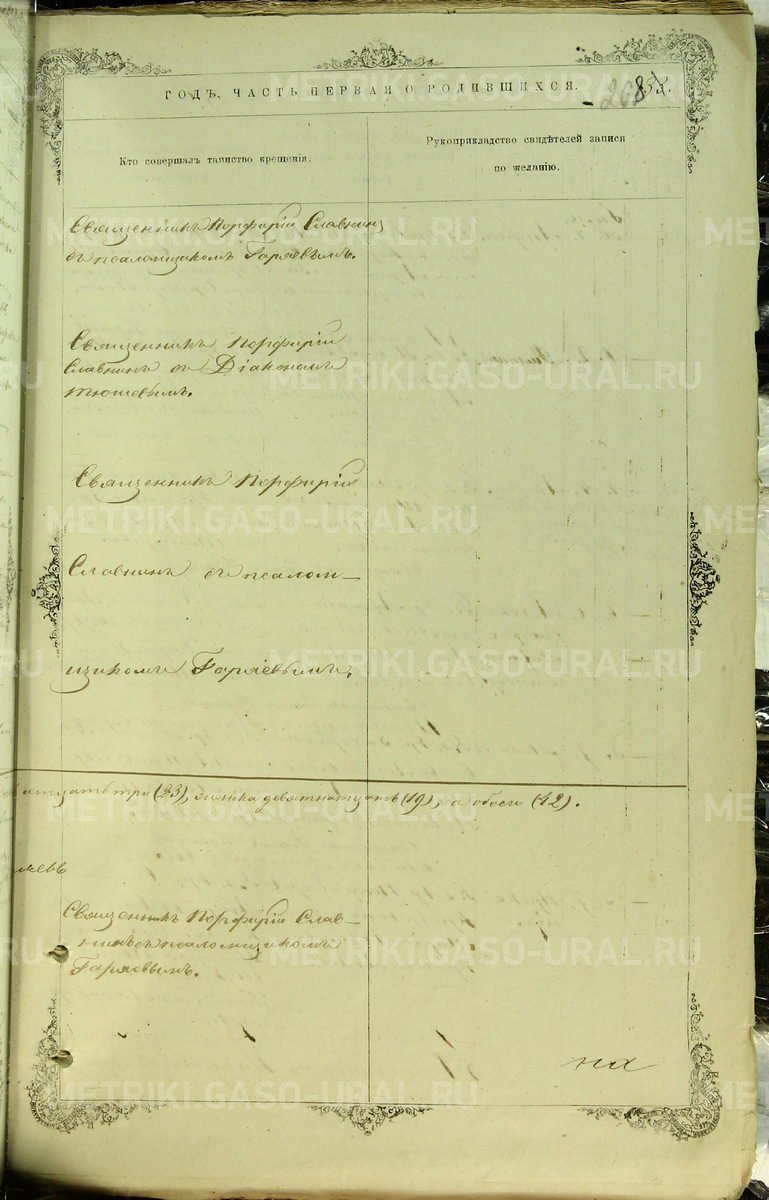 ГОДЪ, ЧАСТЬ ПЕРВАЯ О РОДИВШИХСЯ.
Кто совершалъ таинство крещенія.
Рукоприкладство свидѣтелей записи
по желанію.
Священникъ Порфирій Славнинъ
съ псаломщикомъ Гаряевымъ.
Священникъ Порфирій
Славнинъ съ Діакономъ
Тюшевымъ.
Священникъ Порфирій
Славнинъ съ псалом-
щикомъ Гаряевымъ.
атцать три (23), женска девятнатцать (19), а обоего (42).
Священникъ Порфирій Слав-
нинъ съ псаломщикомъ
Гаряевымъ.
на
METRIKI.GASO-URAL.RU